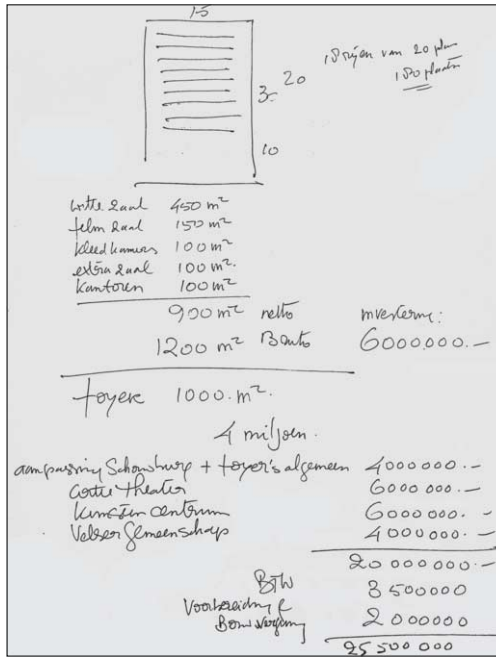 15
18 rijen van 20 plaatsen
180 plaatsen
30 20
10
witte zaal 450 m²
film zaal 150 m²
kleedkamers 100 m²
extra zaal 100 m²
kantoren 100 m²
900 m² netto investering:
1200 m² Bruto 6000.000.-
foyers 1000.m².
4 miljoen.
aanpassing Schouwburg + foyer's algemeen 4000000.-
Witte theater 6000000.-
Kunstencentrum 6000000.-
Velser Gemeenschap 4000000.-
20 000000.-
BTW 3 500000
Voorbereiding &
Bouw 2 000000
25 500 000